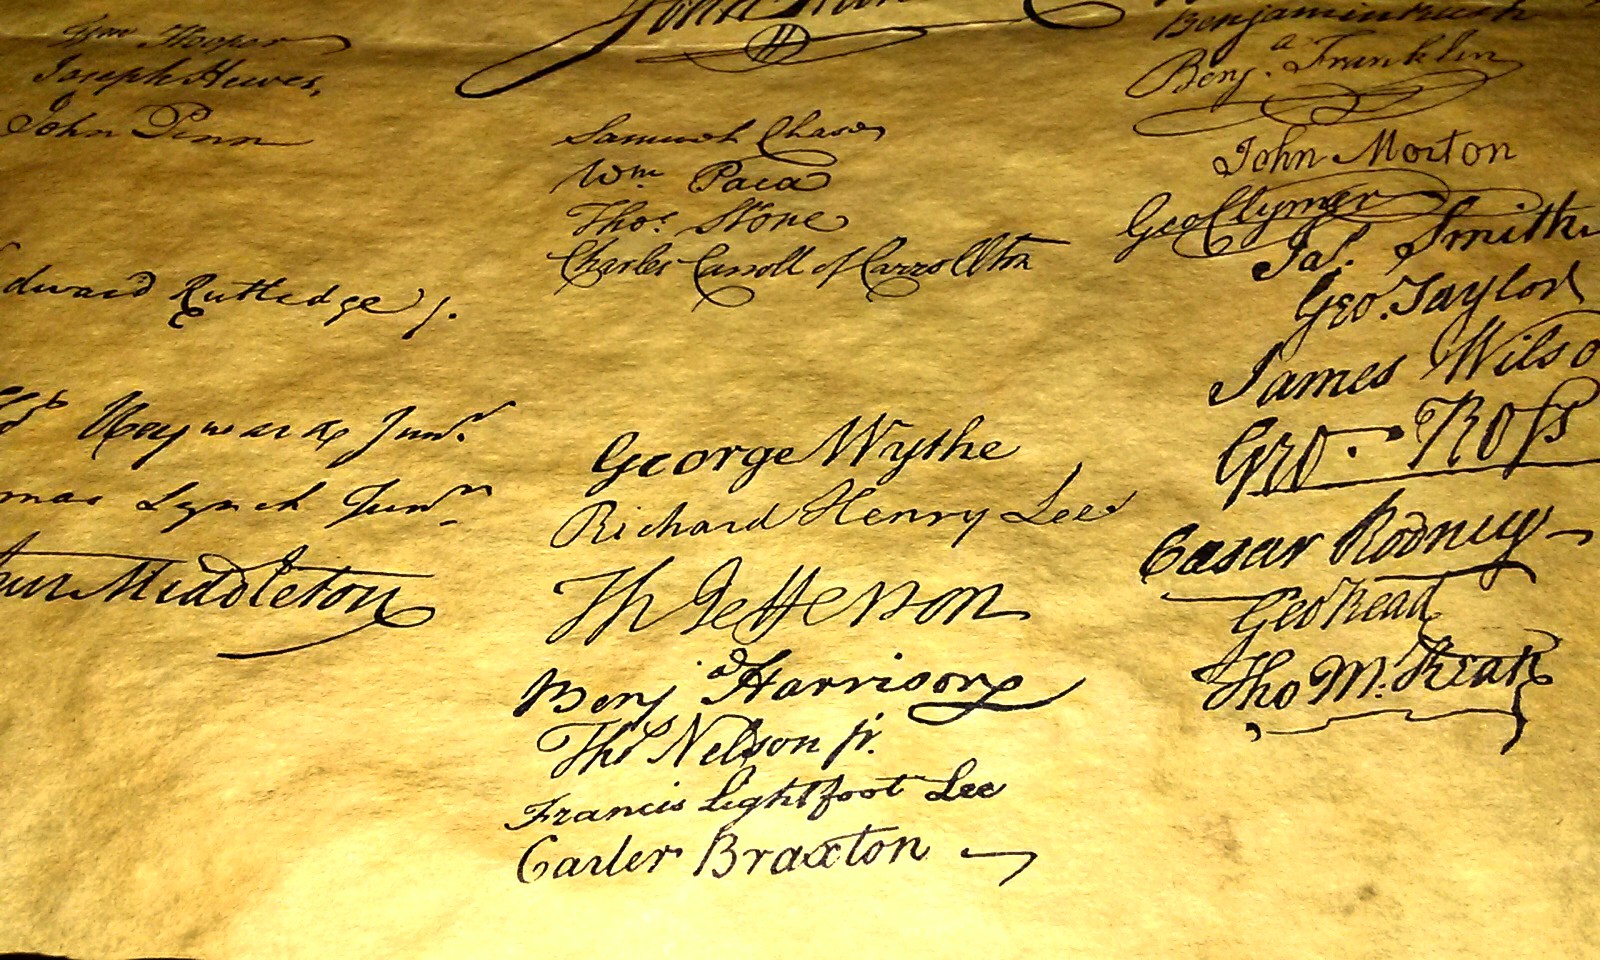 Wm Hooper
Joseph Hewes,
John Penn
dward Rutledge /.
Heyward Junr.
mas Lynch Junr.
Middleton
John Han
Samuel Chase
Wm. Paca
Thos. Stone
Charles Carroll of Carrollton
George Wythe
Richard Henry Lee
Th Jefferson
Benja Harrison
Thos Nelson jr.
Francis Lightfoot Lee
Carter Braxton
Benjamin Rush
Benja. Franklin
John Morton
Geo Clymer
Jas. Smith
Geo. Taylor
James Wilso
Geo. Ross
Caesar Rodney
Geo Read
Tho M:Kean